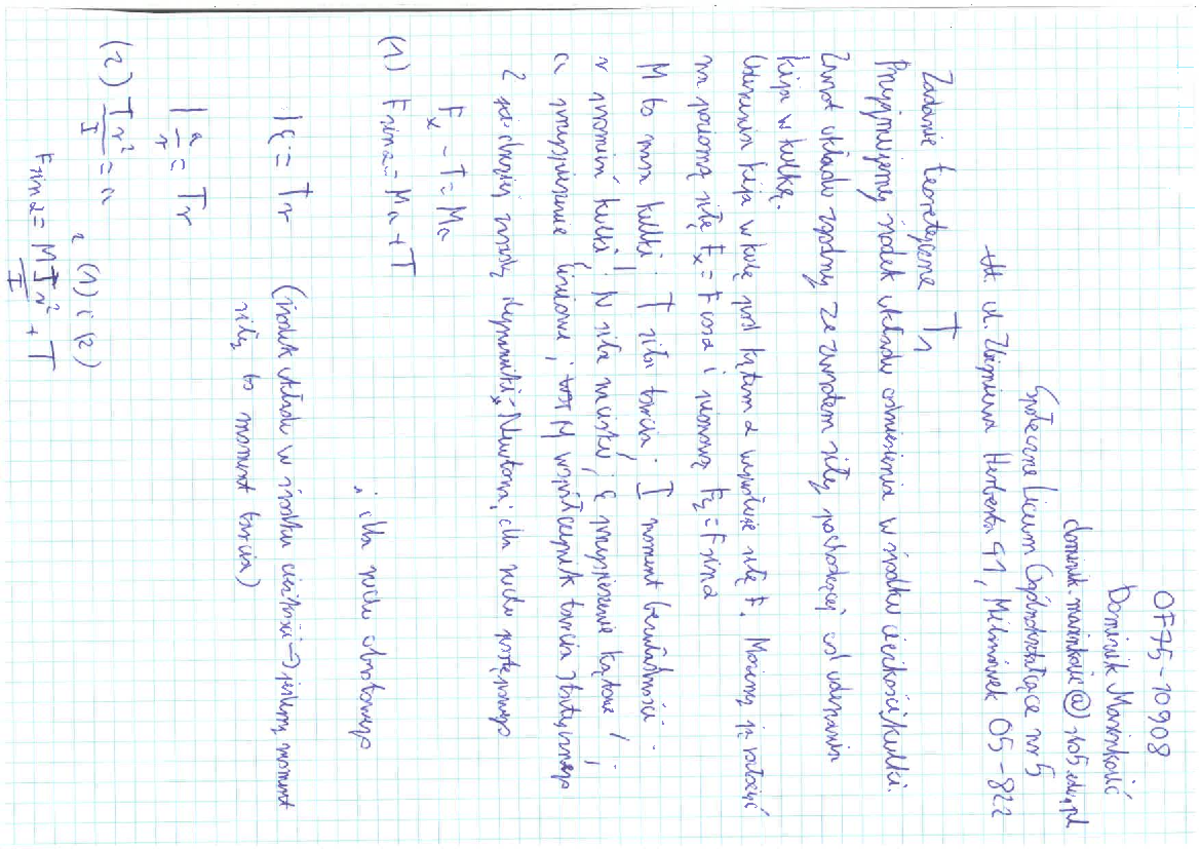 OF75-10908
Dominik Marinković
dominik.marinkovic@slo5.edu.pl
Społeczne Liceum Ogólnokształcące nr 5
ul. Zbigniewa Herberta 41, Milanówek 05-822
Zadanie teoretyczne T1
Przyjmujemy środek układu odniesienia w środku ciężkości kulki.
Zwrot układu zgodny ze zwrotem siły pochodzącej od uderzenia
kija w kulkę.
Uderzenie kija w kulę pod kątem α wywołuje siłę F. Możemy ją rozłożyć
na poziomą siłę Fx = F cosα i pionową Fy = F sinα
M to masa kulki; T siła tarcia; I moment bezwładności;
r promień kulki; N siła nacisku; ε przyspieszenie kątowe;
a przyspieszenie liniowe; M współczynnik tarcia statycznego
Z zasady dynamiki Newtona; dla ruchu postępowego
Fx - T = Ma
(1) F sinα = Ma + T
; dla ruchu obrotowego
Iε = Tr (środek układu w środku ciężkości → jedyny moment
siły to moment tarcia)
I a/r = Tr
(2) Tr²/I = a
z (1) i (2)
F sinα = M Tr²/I + T